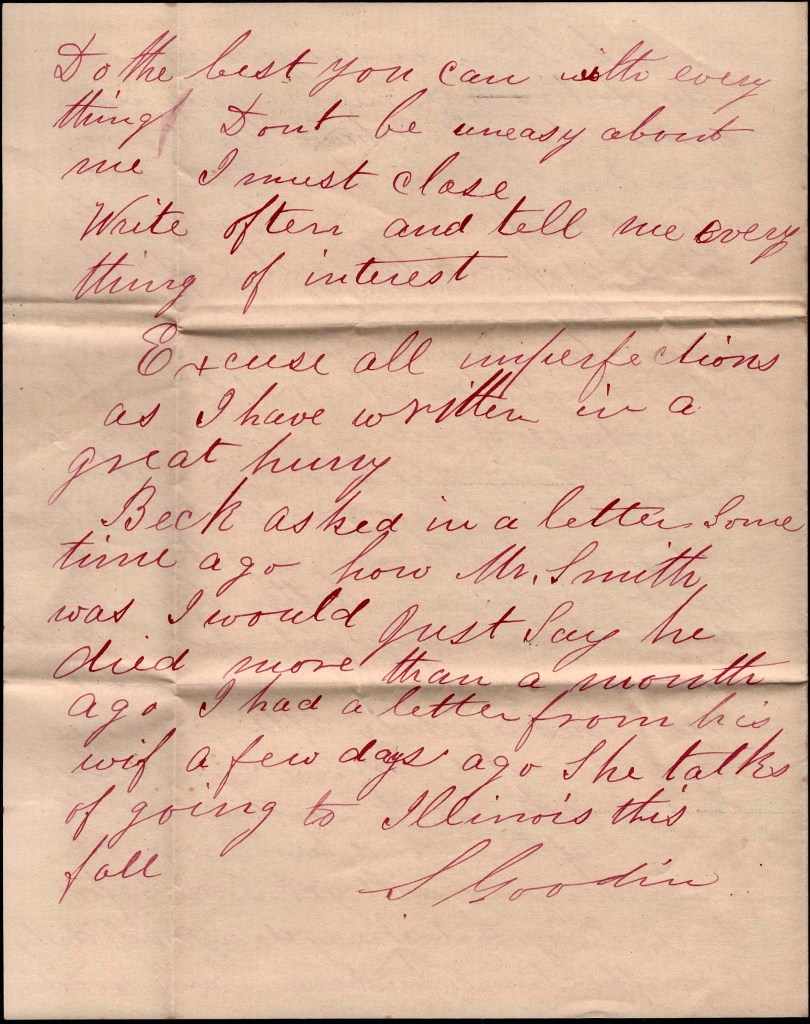 Do the best you can with every
thing Dont be uneasy about
me I must close
Write often and tell me every
thing of interest
Excuse all imperfections
as I have written in a
great hurry
Beck asked in a letter some
time ago how Mr. Smith
was I would just say he
died more than a month
ago I had a letter from his
wif a few days ago She talks
of going to Illinois this
fall
S Goodin